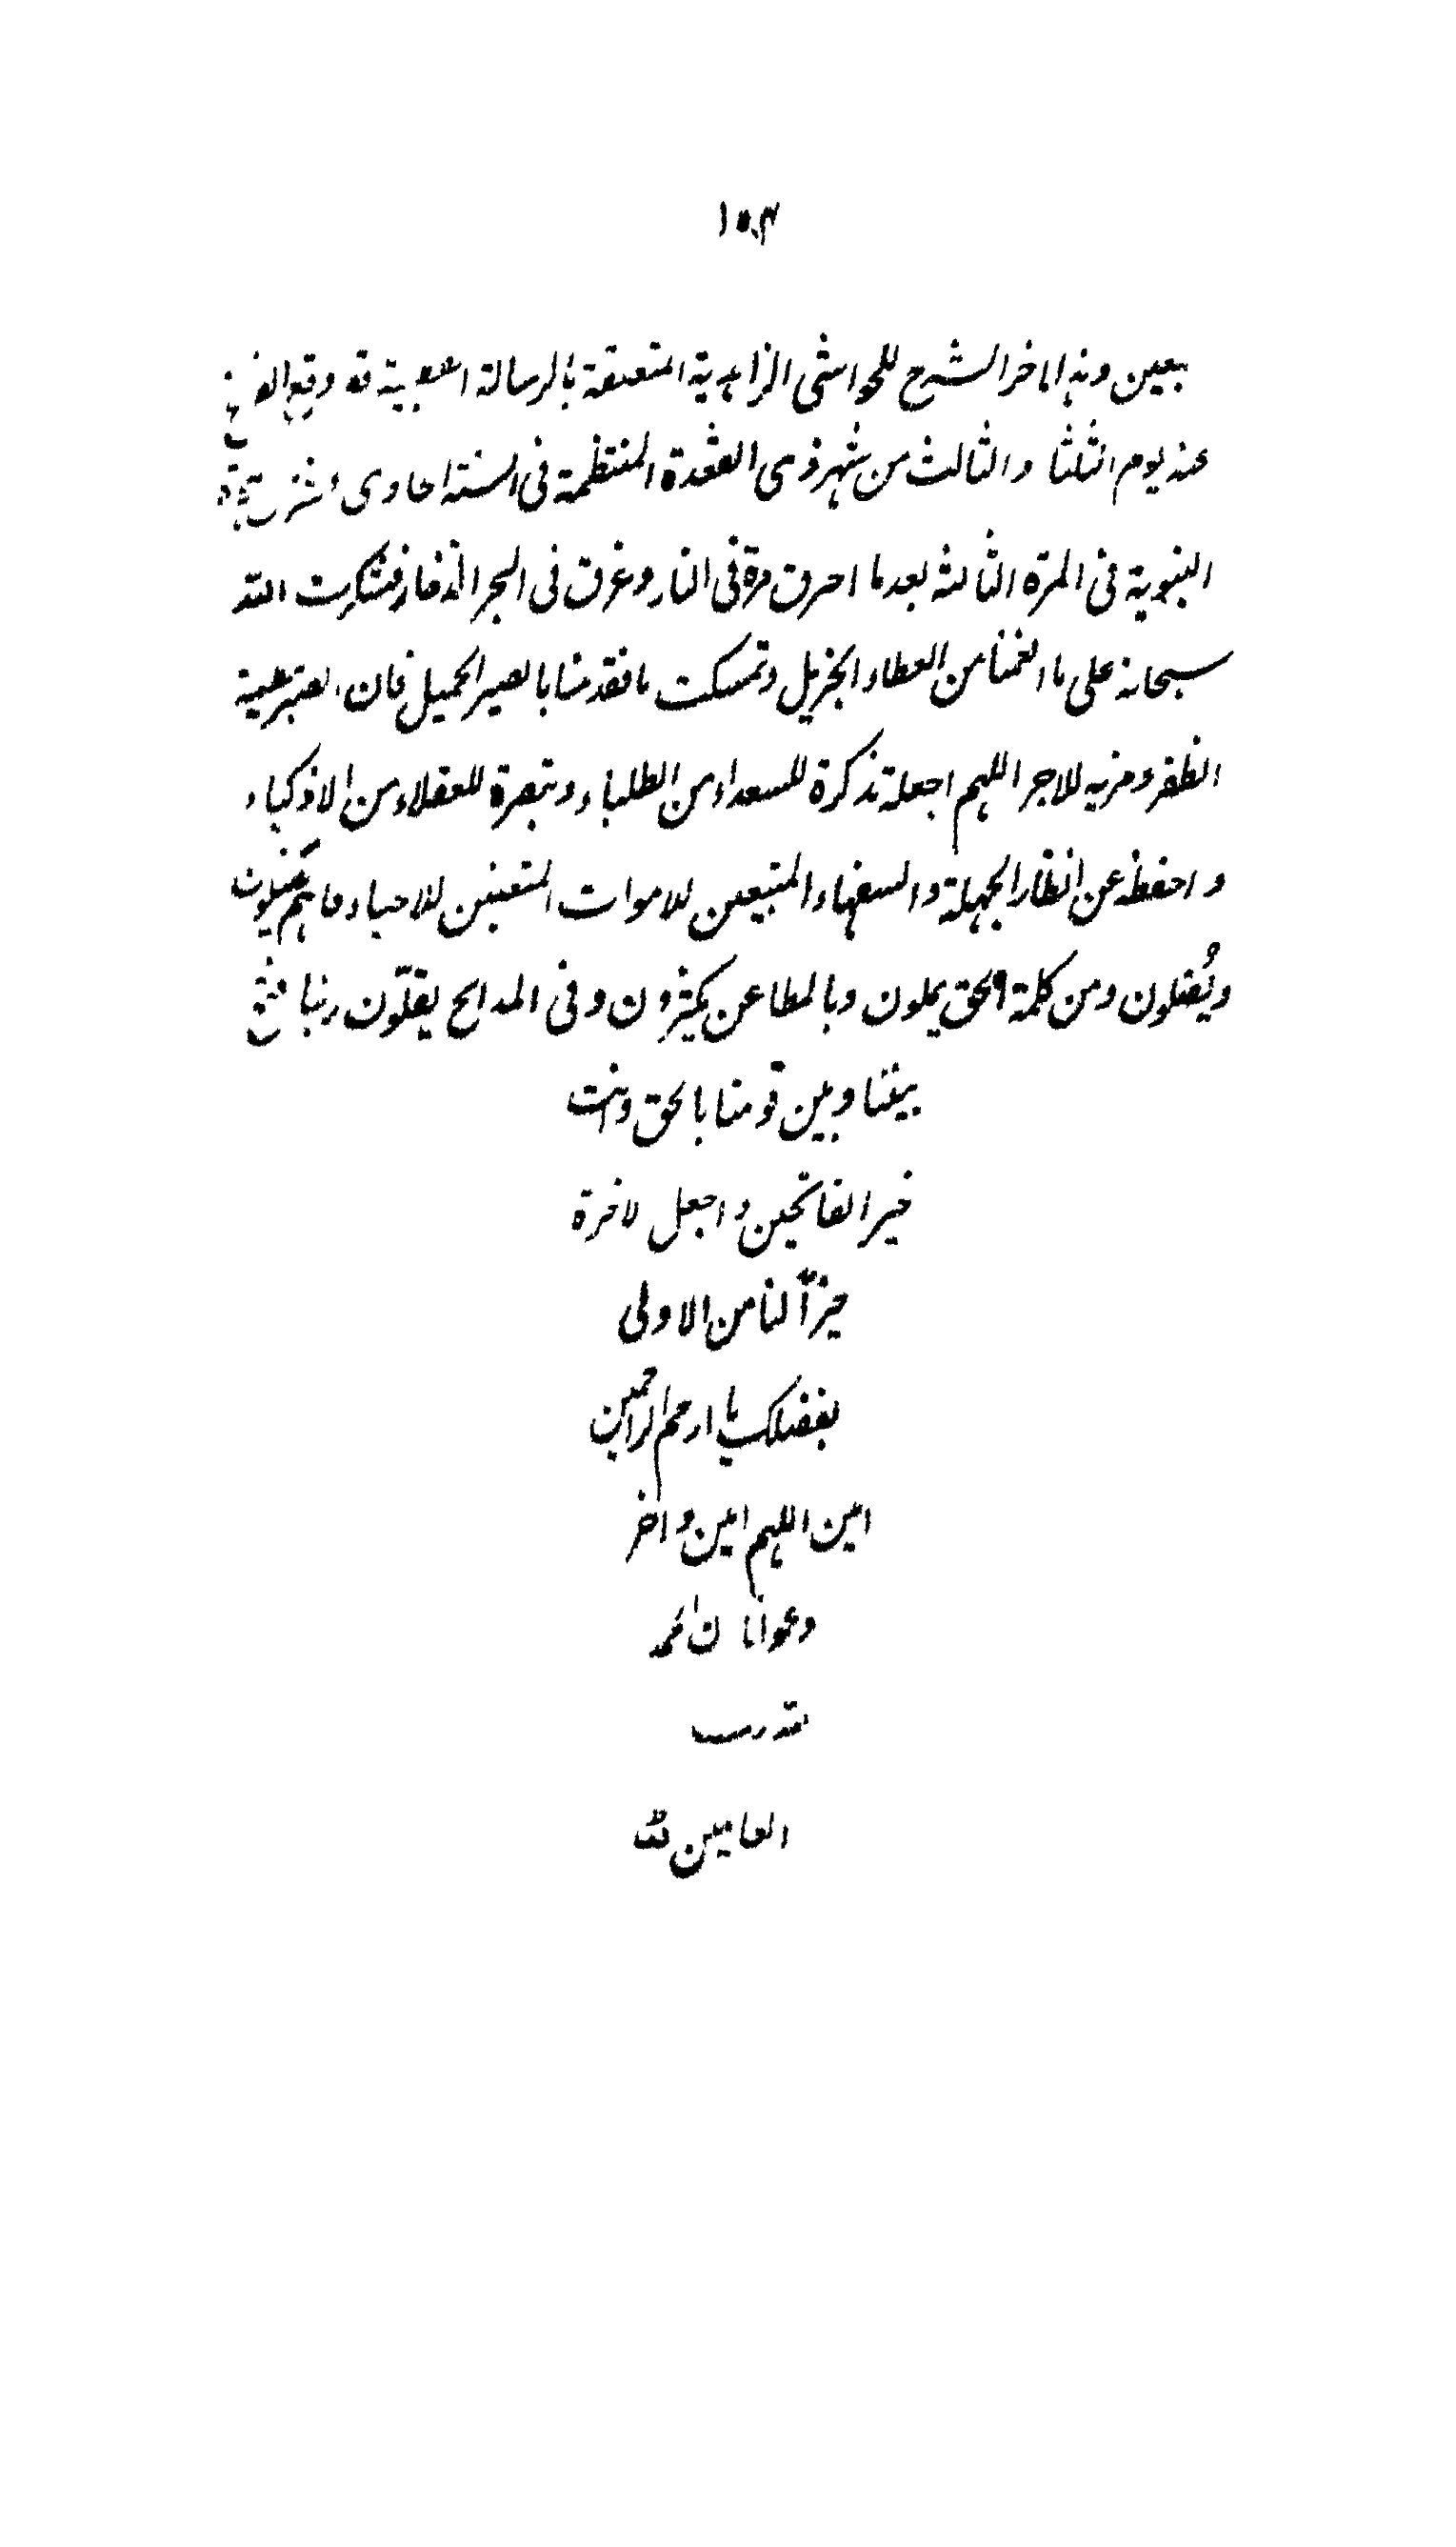 ۱۵۴
بعين وهذا اخر الشرح للحواشى الزاهدية المتعلقة بالرسالة القطبية قد وقع الفراغ
عنه يوم الثلثا والثالث من شهر ذى القعدة المنتظمة فى السنة احادى
النبوية فى المرة الثالثة بعد ما احرق مرة فى النار وغرق فى البحر الذخار فشكرت الله
سبحانه على ما انعمنا من العطاء الجزيل وتمسكت ما فقد منا بالصبر الجميل فان الصبر
الظفر ومزيد للاجر اللهم اجعله تذكرة للسعداء من الطلباء وتبصرة للعقلاء من الاذكياء
و احفظه عن انظار الجهلة والسفهاء المتبعين للاموات المتعنتين للاحياء فانهم
ويُضلون ومن كلمة الحق يملون وبالمطاعن يكثرون وفى المدايح يقلّون ربنا افتح
بيننا وبين قومنا بالحق وانت
خير الفاتحين واجعل لاخرة
خيراً لنا من الاولى
بفضلك يا ارحم الراحمين
امين اللهم امين واخر
دعوانا ان الحمد
لله رب
العالمين